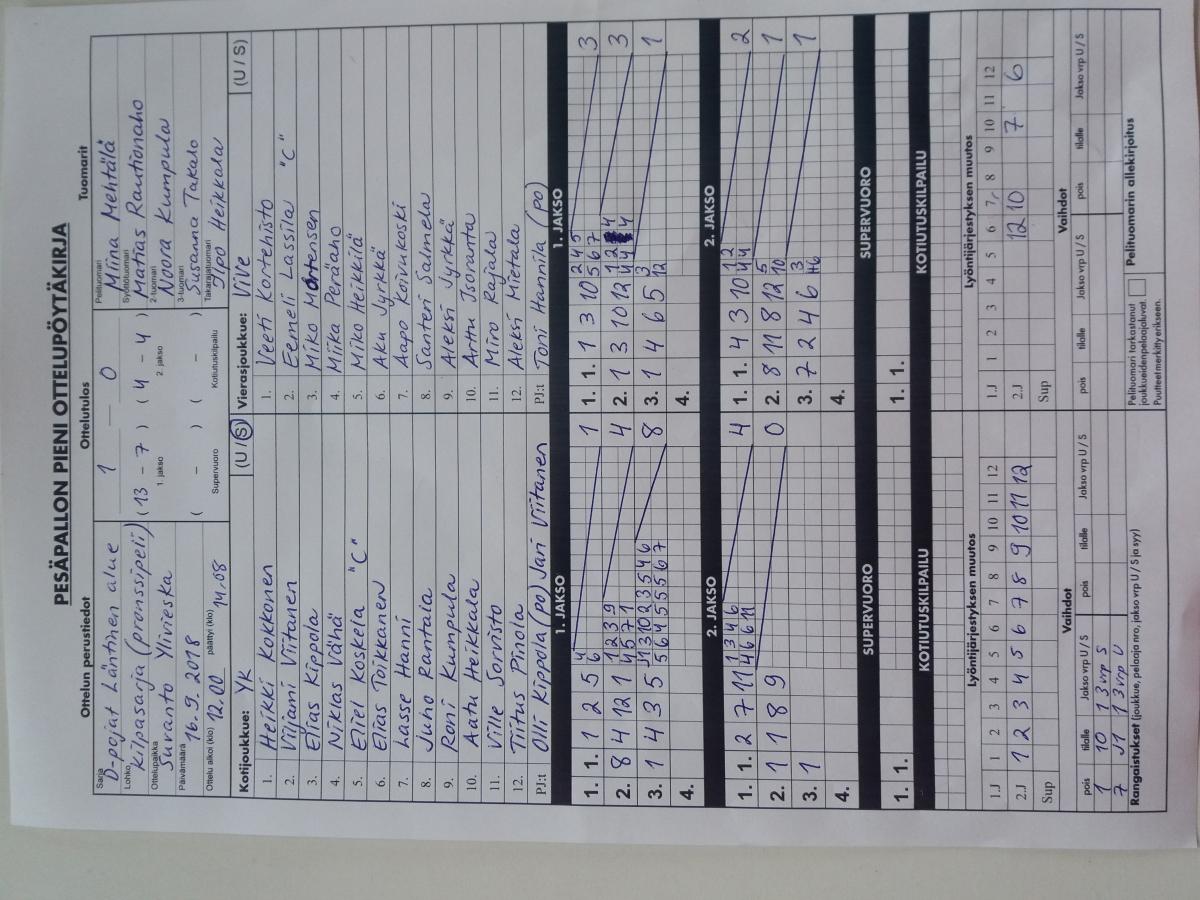 PESÄPALLON PIENI OTTELUPÖYTÄKIRJA
Ottelun perustiedot
Ottelutulos
Tuomarit
Sarja D-pojat Läntinen alue
Lohko Kilpasarja (pronssipeli)
Ottelupaikka Suvanto Ylivieska
Päivämäärä 16.9.2018
Ottelu alkoi (klo) 12.00 päättyi (klo) 14.08
1 0
(13 - 7) (4 - 4)
1. jakso 2. jakso
( - ) ( - )
Supervuoro Kotiutuskilpailu
Pelituomari Miina Mehtälä
Syöttötuomari Matias Rautionaho
2-tuomari Noora Kumpula
3-tuomari Susanna Takalo
Takarajatuomari Ilpo Heikkala
Kotijoukkue: YK (U / S)
1. Heikki Kokkonen
2. Viljami Viitanen
3. Elias Kippola
4. Niklas Vähä
5. Eliel Koskela "C"
6. Elias Toikkanen
7. Lasse Hanni
8. Juho Rantala
9. Roni Kumpula
10. Aatu Heikkala
11. Ville Sorvisto
12. Tiitus Pinola
PJ:t Olli Kippola (po) Jari Viitanen
Vierasjoukkue: ViVe (U / S)
1. Veeti Kortehisto
2. Eemeli Lassila "C"
3. Miko Mortensen
4. Miika Peräaho
5. Miko Heikkilä
6. Aku Jyrkkä
7. Aapo Koivukoski
8. Santeri Sarmela
9. Aleksi Jyrkkä
10. Arttu Isoranta
11. Miro Rajala
12. Aleksi Mietala
PJ:t Toni Hannila (po)
1. JAKSO
1. 1. 1 2 5 4 6 1
2. 8 4 12 1 1 2 3 9 4 5 7 1 4
3. 1 4 3 5 J1 3 10 2 3 5 4 6 5 6 4 5 5 5 6 7 8
4.
1. JAKSO
1. 1. 1 3 10 2 4 5 5 6 7 3
2. 1 3 10 12 3
3. 1 4 6 5 3 12 1
4.
2. JAKSO
1. 1. 2 7 11 1 3 4 6 4 6 6 11 4
2. 1 1 8 9 0
3. 1
4.
2. JAKSO
1. 1. 4 3 10 1 2 4 4 2
2. 8 11 8 12 5 10 1
3. 7 2 4 6 3 1
4.
SUPERVUORO
1. 1.
SUPERVUORO
1. 1.
KOTIUTUSKILPAILU
KOTIUTUSKILPAILU
Lyöntijärjestyksen muutos
1.J 1 2 3 4 5 6 7 8 9 10 11 12
2.J 1 2 3 4 5 6 7 8 9 10 11 12
Sup
Lyöntijärjestyksen muutos
1.J 1 2 3 4 5 6 7 8 9 10 11 12
2.J 12 10 7 6
Sup
Vaihdot
pois tilalle Jakso vrp U / S pois tilalle Jakso vrp U / S
1 10 1 3vrp S
7 J1 1 3vrp U
Vaihdot
pois tilalle Jakso vrp U / S pois tilalle Jakso vrp U / S
Rangaistukset (joukkue, pelaaja nro, jakso vrp U / S ja syy)
Pelituomari tarkastanut
joukkueiden pelaajaluvat.
Puutteet merkitty erikseen.
Pelituomarin allekirjoitus